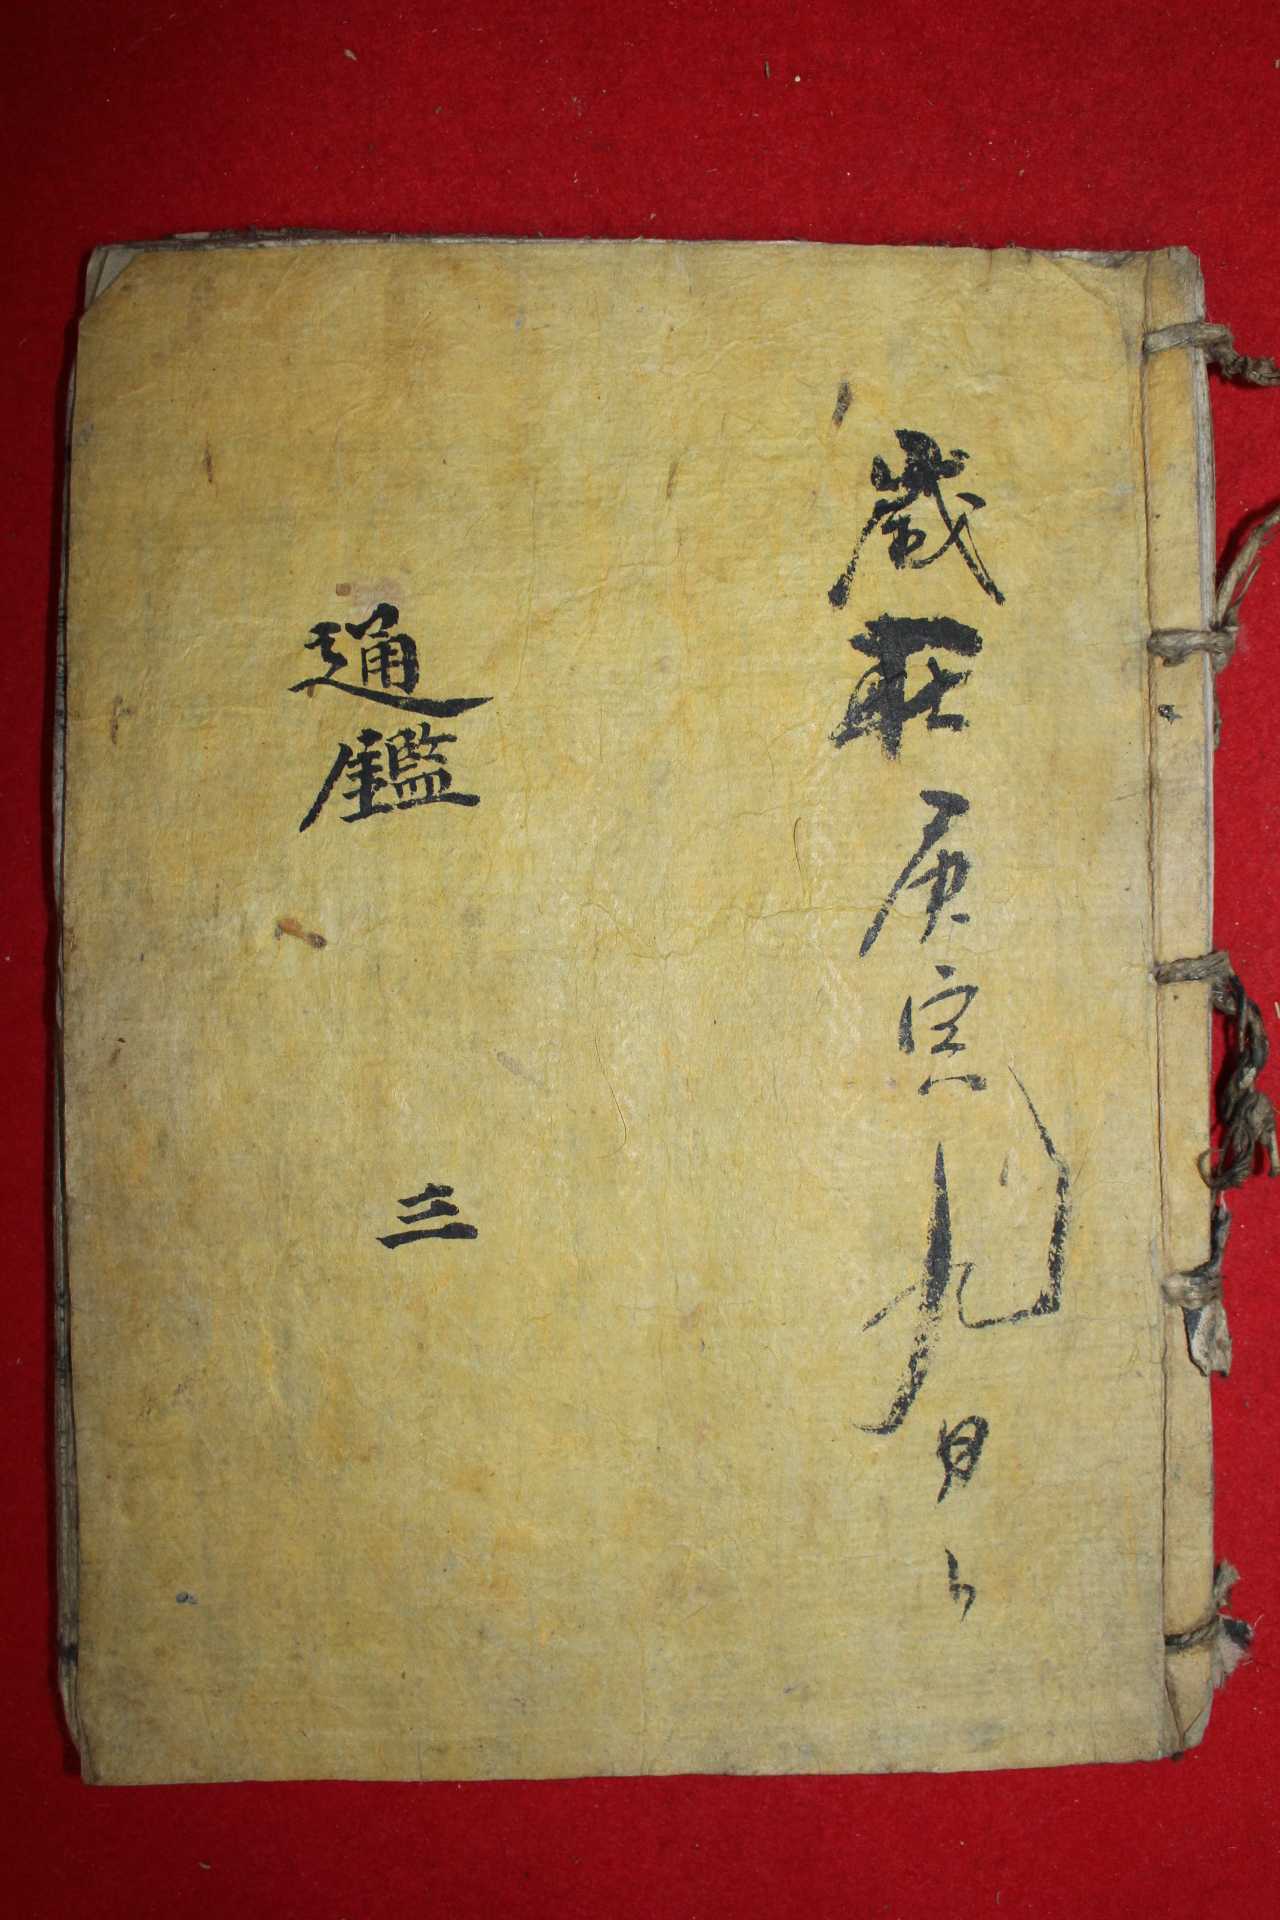 歲在庚寅九月日
通鑑 三